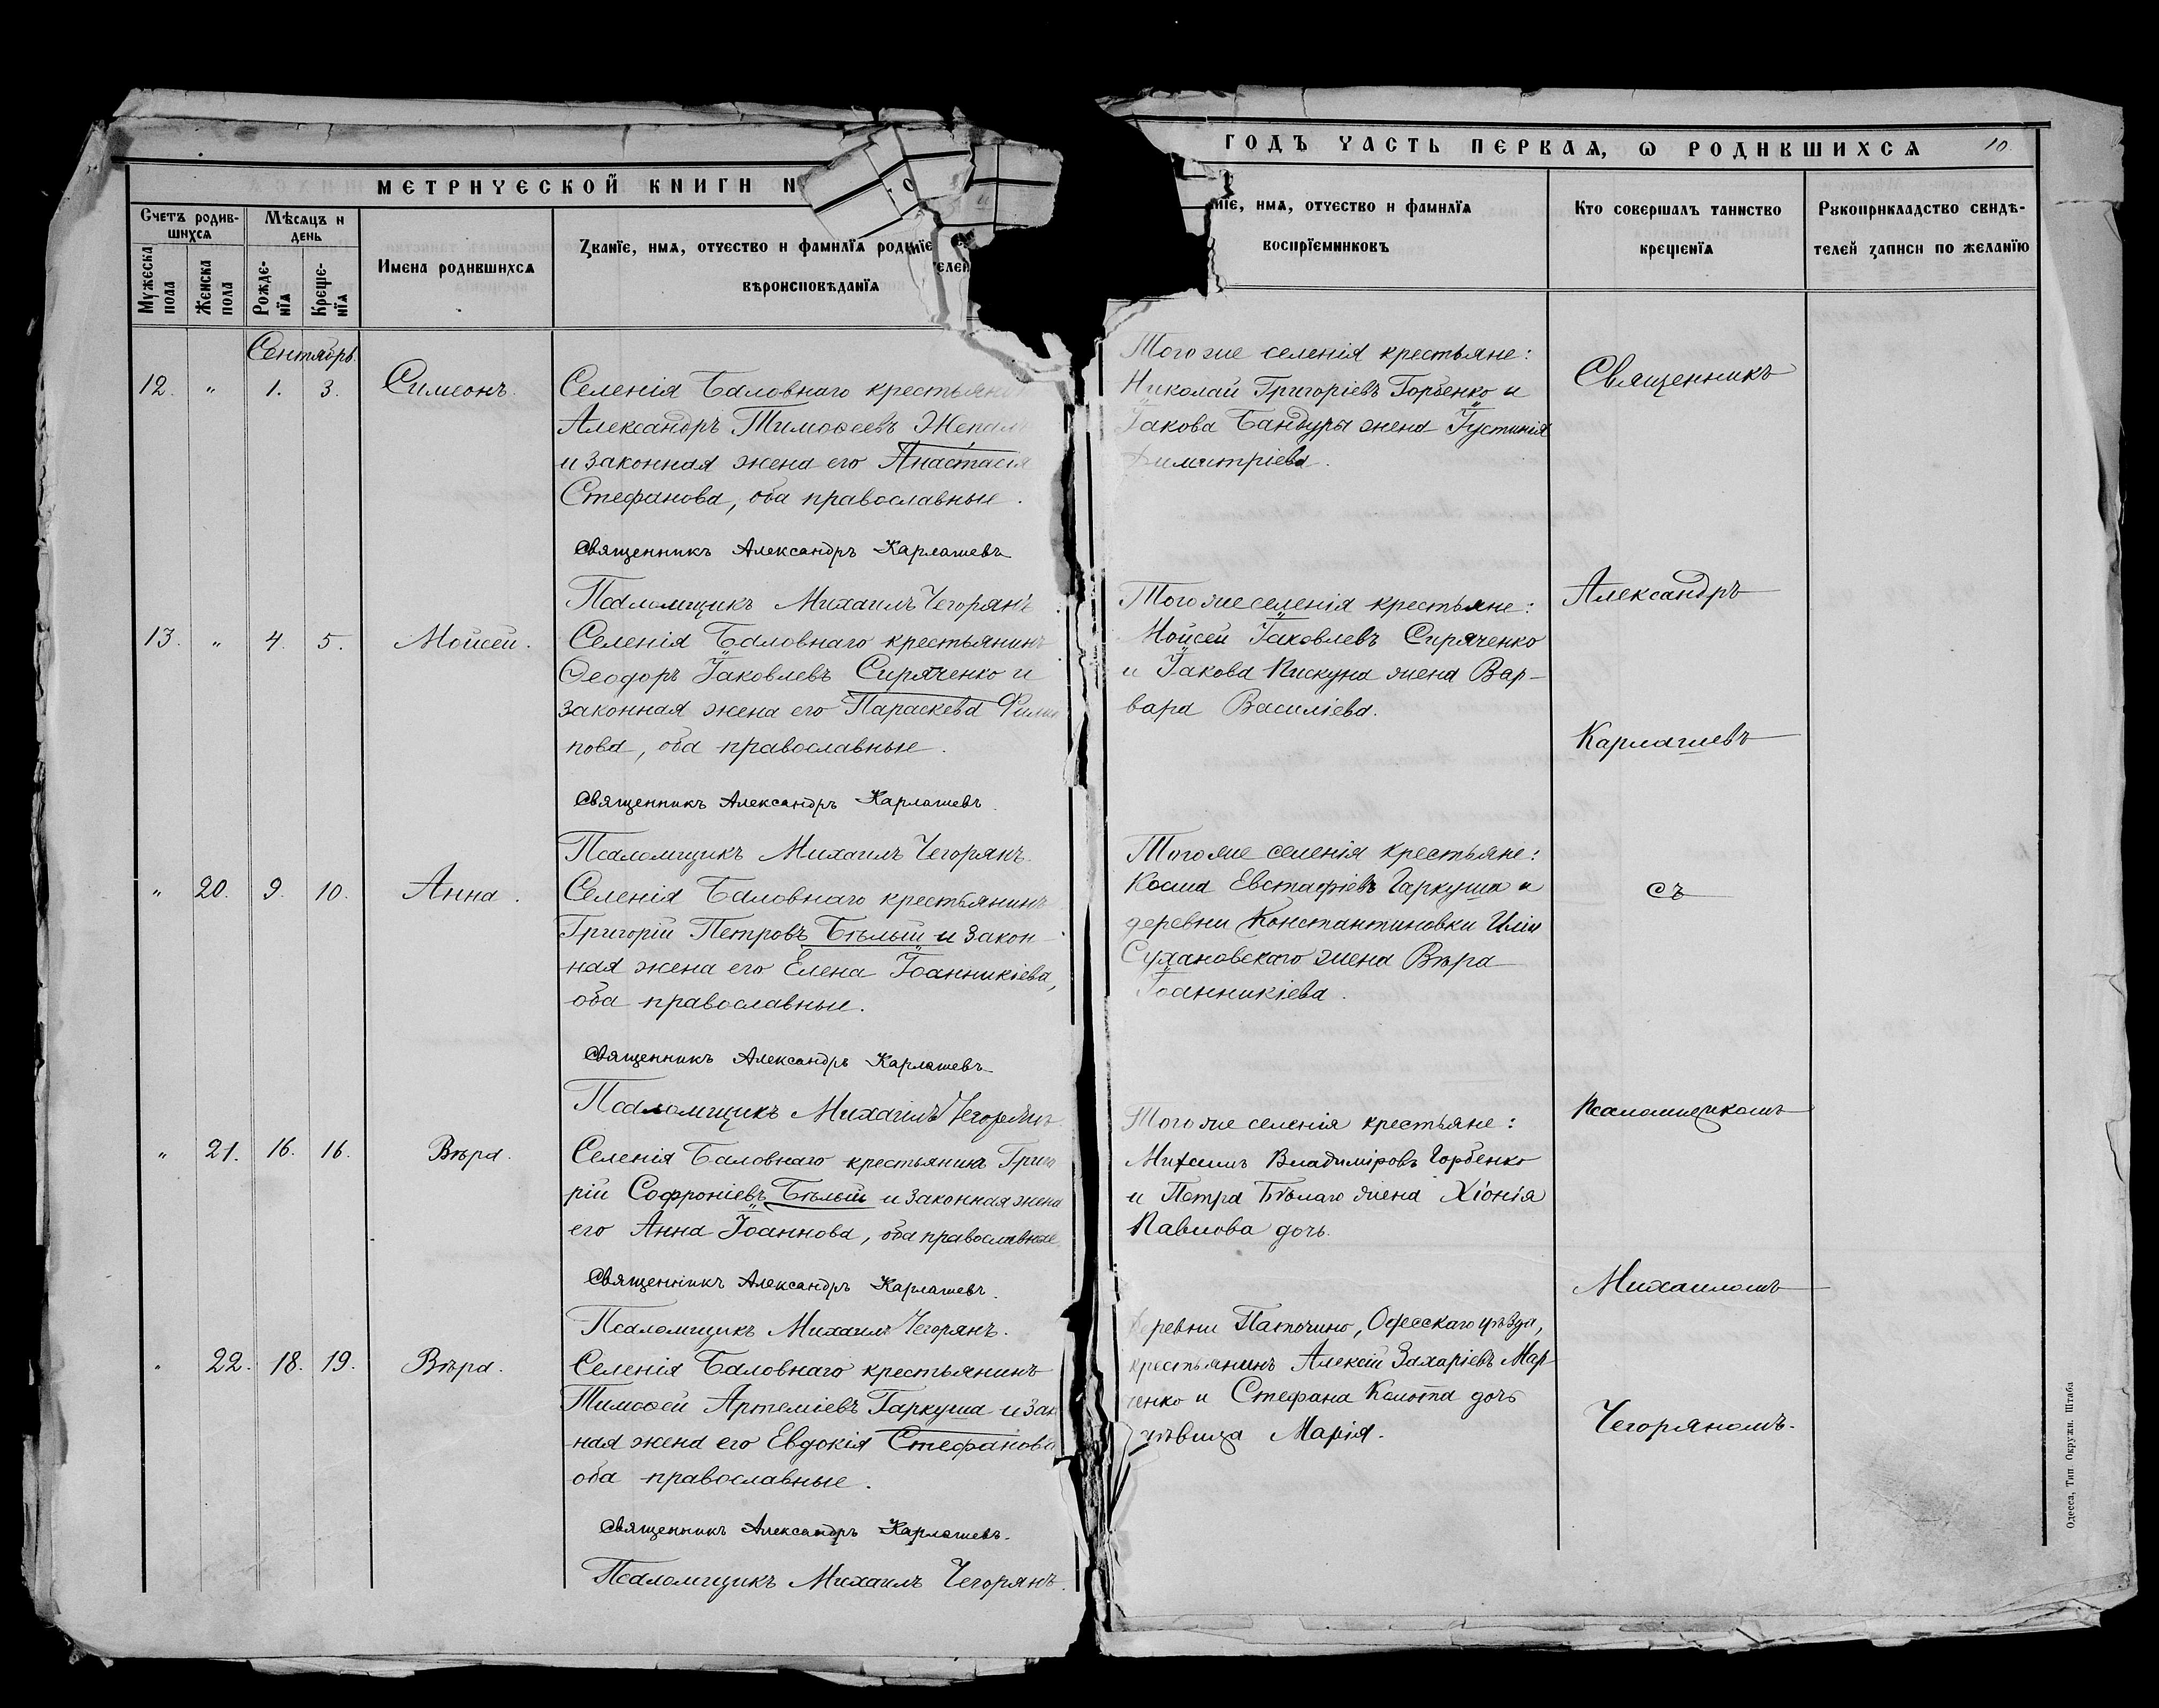 МЕТРИЧЕСКОЙ КНИГИ
Счетъ родив-
шихся
Мѣсяцъ и
день
Мужеска
пола
Женска
пола
Рожде-
нїя
Креще-
нїя
Имена родившихся
Званїе, имя, отчество и фамилїя
вѣроисповѣданїя
Сентябрь.
12. " 1. 3. Симеонъ.
Селенія Баловнаго
Александръ Тимоѳеевъ
и законная жена его Анастасія
Стефанова, оба православные.
Священникъ Александръ Карлашевъ
Псаломщикъ Михаилъ Чегорянъ
13. " 4. 5. Мойсей.
Селенія Баловнаго крестьянинъ
Ѳеодоръ Іаковлевъ Сиряченко и
законная жена его Параскева Филип
пова, оба православные.
Священникъ Александръ Карлашевъ.
Псаломщикъ Михаилъ Чегорянъ.
" 20. 9. 10. Анна.
Селенія Баловнаго крестьянинъ
Григорій Петровъ Бѣлый и закон-
ная жена его Елена Іоанникіева,
оба православные.
Священникъ Александръ Карлашевъ
Псаломщикъ Михаилъ Чегорянъ
" 21. 16. 16. Вѣра.
Селенія Баловнаго крестьянинъ Григо
рій Софроніевъ Бѣлый и законная жена
его Анна Іоаннова, оба православные.
Священникъ Александръ Карлашевъ.
Псаломщикъ Михаилъ Чегорянъ.
" 22. 18. 19. Вѣра.
Селенія Баловнаго крестьянинъ
Тимоѳей Артеміевъ Гаркуша и зак
ная жена его Евдокія Стефанова
оба православные.
Священникъ Александръ Карлашевъ.
Псаломщикъ Михаилъ Чегорянъ.
ГОДЪ ЧАСТЬ ПЕРВАЯ, Ѡ РОДИВШИХСЯ
10
нїе, имя, отчество и фамилїя
воспрїемниковъ
Кто совершалъ таинство
крещенїя
Рукоприкладство свидѣ-
телей записи по желанїю
Того же селенія крестьяне:
Николай Григоріевъ Горбенко и
Іакова Бандуры жена Іустинія
Димитріева.
Того же селенія крестьяне:
Мойсей Іаковлевъ Сиряченко
и Іакова Пискуна жена Вар-
вара Василіева.
Того же селенія крестьяне:
Косма Евстафіевъ Гаркуша и
деревни Константиновки Иліи
Сухановскаго жена Вѣра
Іоанникіева.
Того же селенія крестьяне:
Михаилъ Владиміровъ Горбенко
и Петра Бѣлаго жена Хіонія
Павлова дочь.
Деревни Одесскаго уѣзда,
крестьянинъ Алексій Захаріевъ Мар-
ченко и Стефана дочь
дѣвица Марія.
Священникъ
Александръ
Карлашевъ
съ
Псаломщикомъ
Михаиломъ
Чегоряномъ.
Одесса, Тип. Окружн. Штаба